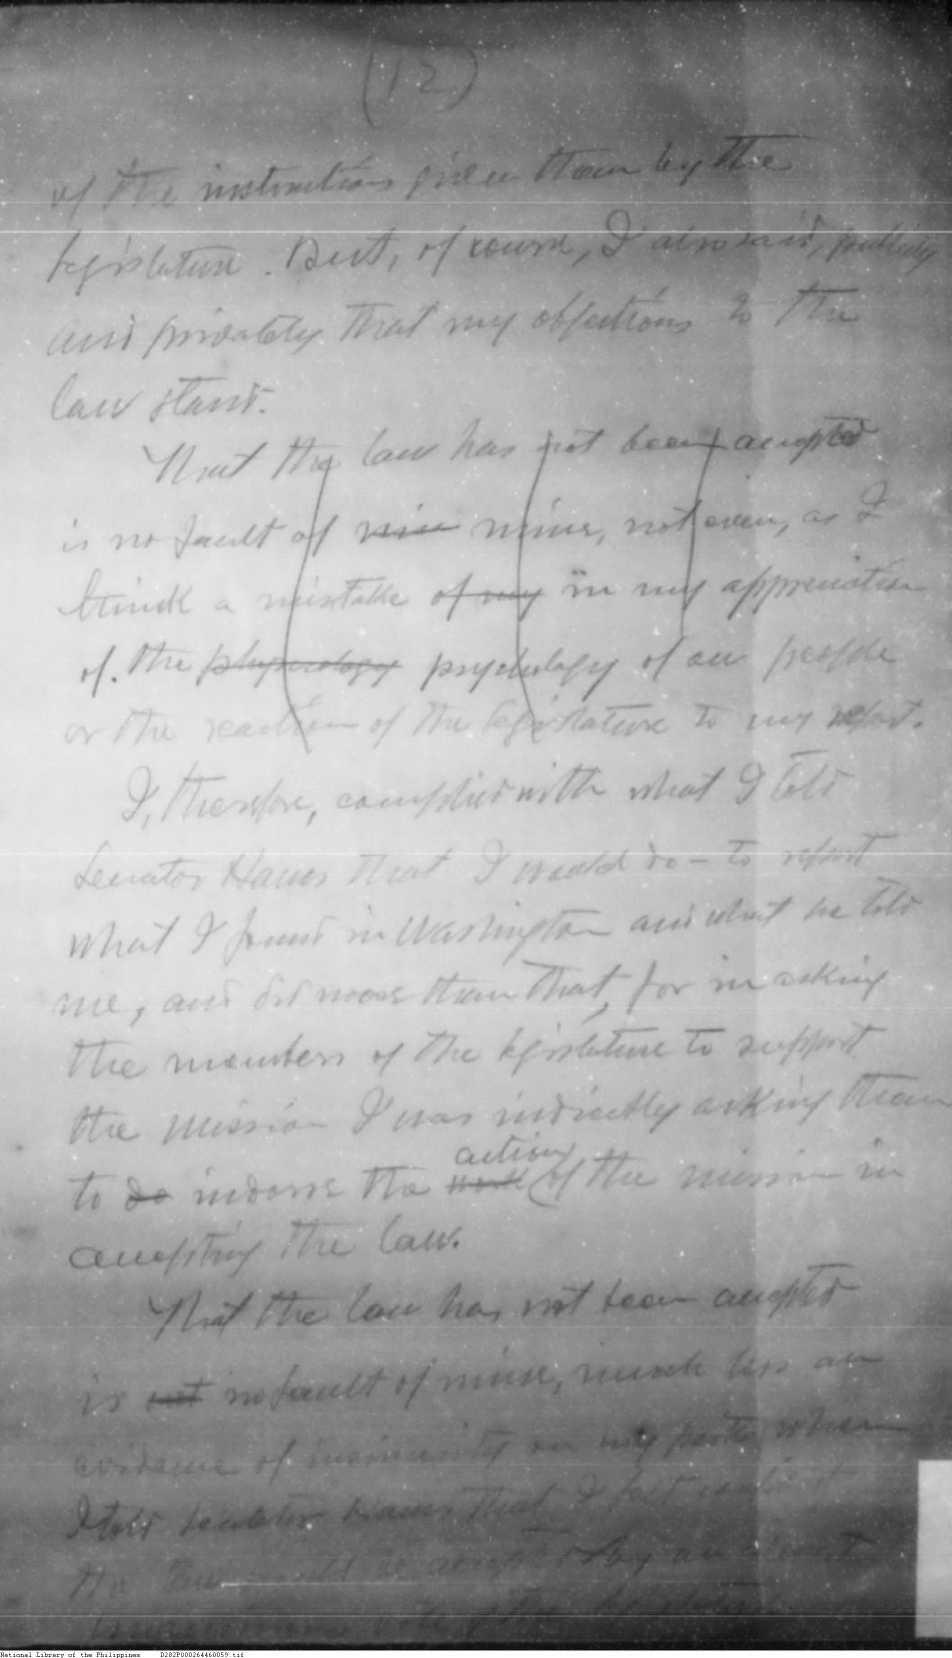 (12)
of the instructions given them by the
legislature. But, of course, I also said, publicly
and privately that my objections to the
law stand.
That the law has not been accepted
is no fault of mine, not even, as I
think a mistake of my in my appreciation
of the physcology psychology of our people
or the reaction of the legislature to my report.
I, therefore, complied with what I told
Senator Hawes that I would do – to report
what I found in Washington and what he told
me, and did more than that, for in asking
the members of the legislature to support
the mission I was indirectly asking them
action
to do indorse the work of the mission in
accepting the law.
That the law has not been accepted
is not no fault of mine, much less an
evidence of insincerity on my part, when
I told Senator Hawes that I felt
the law would be accepted by an almost
vote of the legislature
National Library of the Philippines D282P000264460059.tif